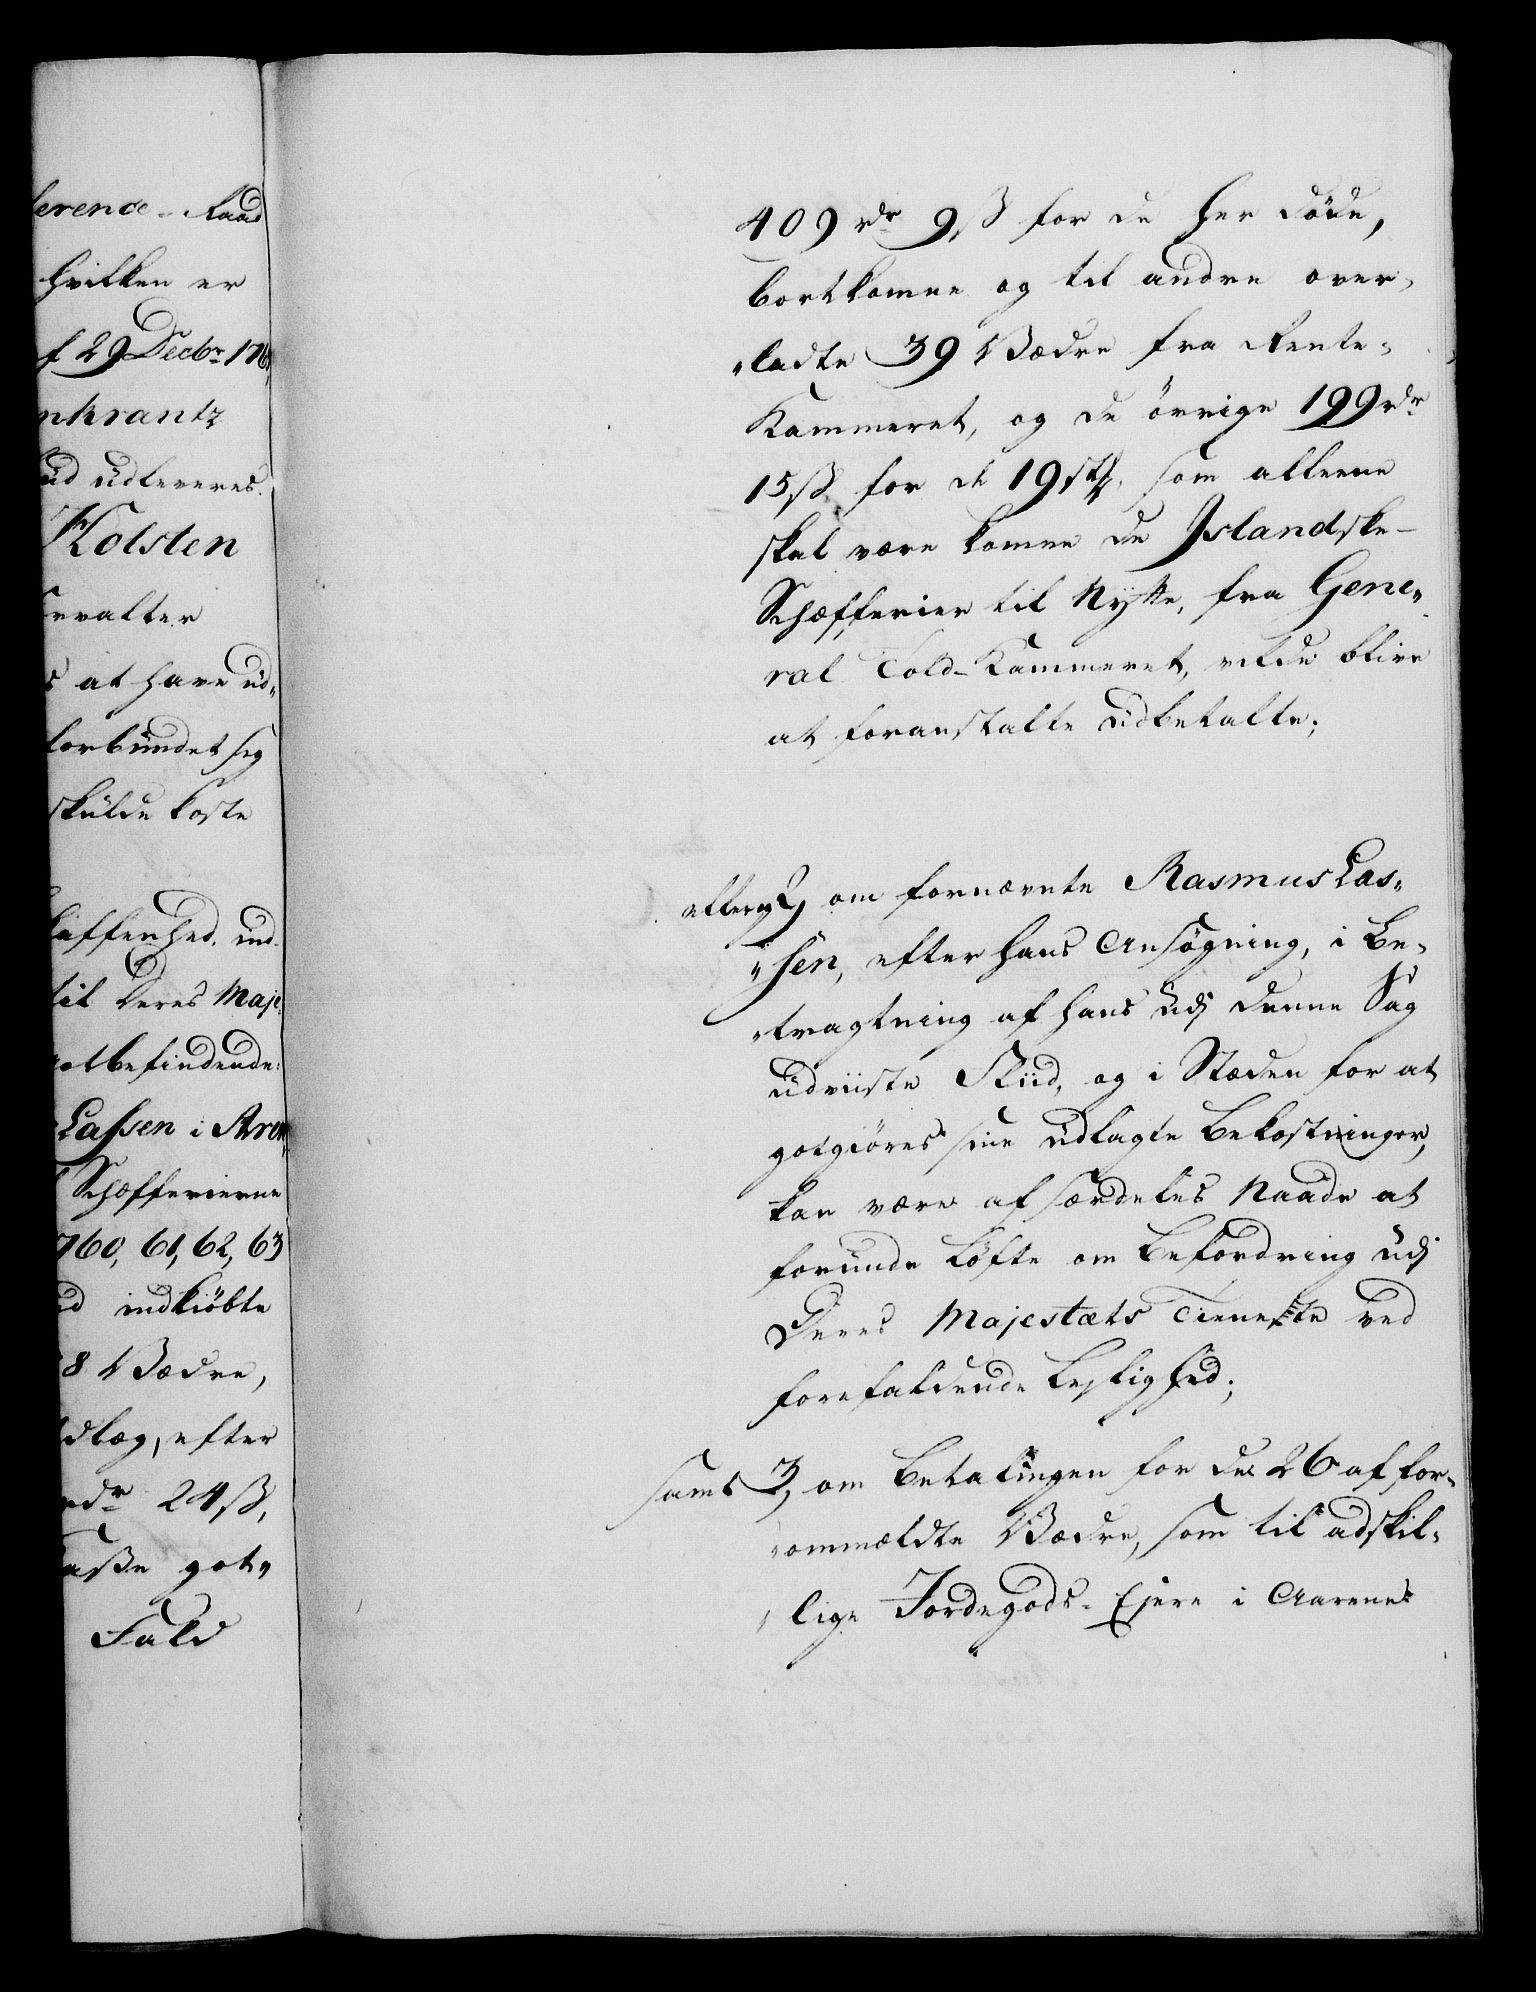 ference-Raad
hvilken er
f 29 Decbr 176
nkrantz
ud udleveres.
Holsten
rvalter
s at have ud„
forbundet sig
skulde koste
kaffenhed, ind-
til Deres Maje
gotbefindende:
Lassen i Aren
Schæfferierne
1760, 61, 62, 63
ud indkiøbte
8 Vædre,
dlæg, efter
rdr 24 ß,
Casse got„
Fald
409 rdr 9 ß for de her døde,
bortkomne og til andre over„
„ladte 39 Vædre fra Rente-
Kammeret, og de övrige 199 rdr
15 ß for de 19 stk, som alleene
skal være komne de Islandske-
Schæfferier til Nytte, fra Gene„
ral Told-Kammeret, vilde blive
at foranstalte udbetalte;
2, om fornævnte Rasmus Las„
„sen, efter hans Ansøgning, i Be„
„tragtning af hans udj denne Sag
udviiste Fliid, og i Stæden for at
gotgiøres sine udlagte Bekostninger,
kan være af særdeles Naade at
forunde Løfte om Befordring udj
Deres Majestæts Tieneste ved
forefaldende Leylighed;
samt 3, om Betalingen for de 26 af for„
„ommældte Vædre, som til adskil„
„lige Jordegods-Ejere i Aarene